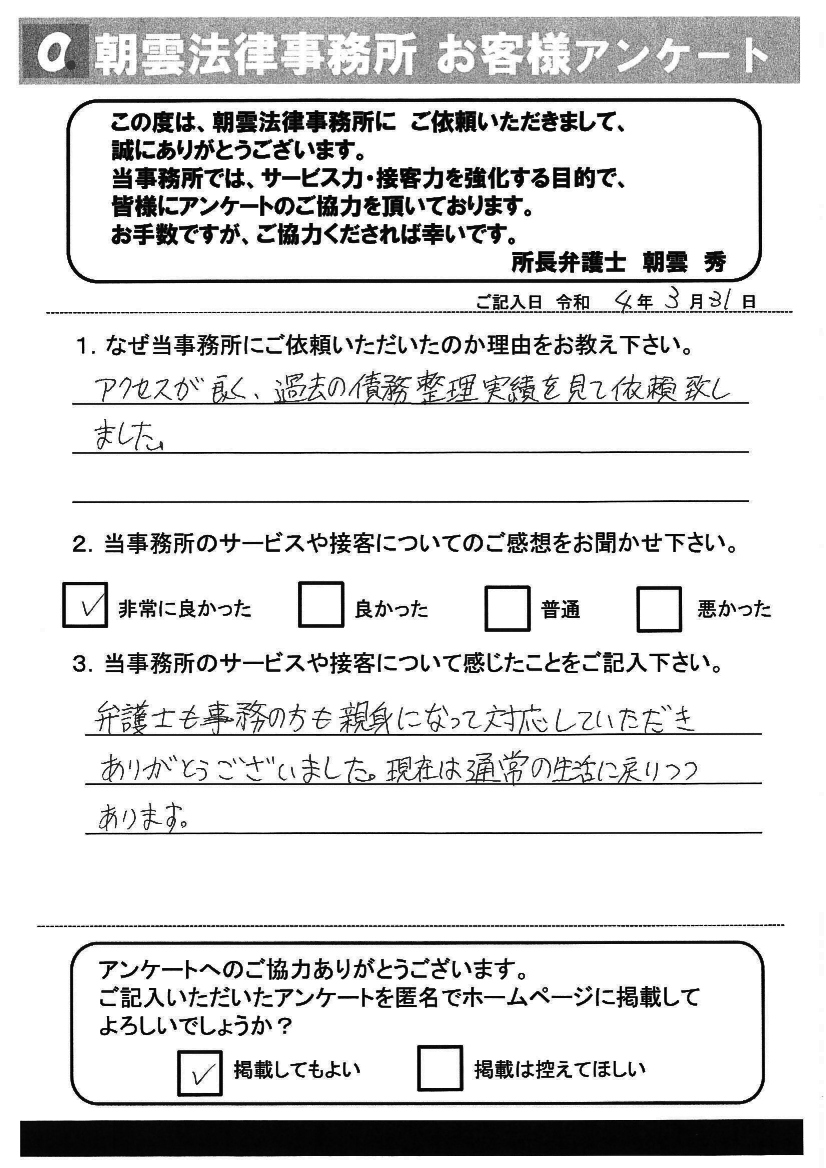 a. 朝雲法律事務所 お客様アンケート
この度は、朝雲法律事務所に ご依頼いただきまして、
誠にありがとうございます。
当事務所では、サービス力・接客力を強化する目的で、
皆様にアンケートのご協力を頂いております。
お手数ですが、ご協力くだされば幸いです。
所長弁護士 朝雲 秀
ご記入日 令和 4年 3月31日
1. なぜ当事務所にご依頼いただいたのか理由をお教え下さい。
アクセスが良く、過去の債務整理実績を見て依頼致し
ました。
2. 当事務所のサービスや接客についてのご感想をお聞かせ下さい。
✓ 非常に良かった 良かった 普通 悪かった
3. 当事務所のサービスや接客について感じたことをご記入下さい。
弁護士も事務の方も親身になって対応していただき
ありがとうございました。現在は通常の生活に戻りつつ
あります。
アンケートへのご協力ありがとうございます。
ご記入いただいたアンケートを匿名でホームページに掲載して
よろしいでしょうか？
✓ 掲載してもよい 掲載は控えてほしい